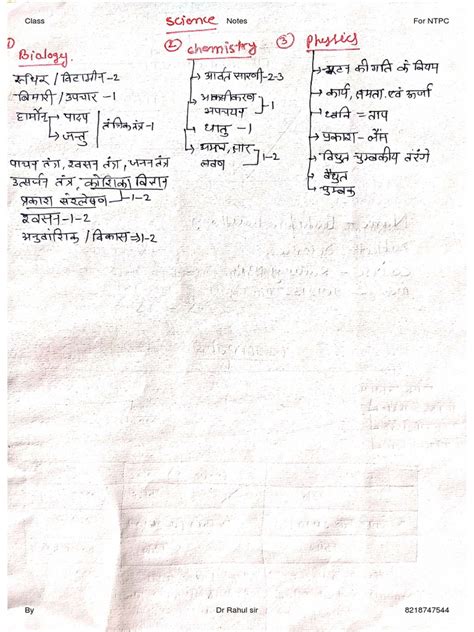 Class Science Notes For NTPC
1) Biology.
रूधिर / विटामीन-2
बिमारी / उपचार -1
हार्मोन → पादप
→ जन्तु
तंत्रिका तंत्र-1
पाचन तंत्र, श्वसन तंत्र, जनन तंत्र
उत्सर्जन तंत्र, कोशिका विज्ञान
प्रकाश संश्लेषण -1-2
श्वसन -1-2
अनुवांशिक / विकास ⇒ 1-2
② chemistry
→ आवर्त सारणी -2-3
→ अपचयन -1
→ धातु -1
→ अम्ल, क्षार
लवण 1-2
③ Physics
→ न्यूटन की गति के नियम
→ कार्य, क्षमता, एवं ऊर्जा
→ ध्वनि = ताप
→ प्रकाश - लैंस
→ विद्युत चुम्बकीय तरंगे
→ वैद्युत
→ चुम्बक
By Dr Rahul sir 8218747544